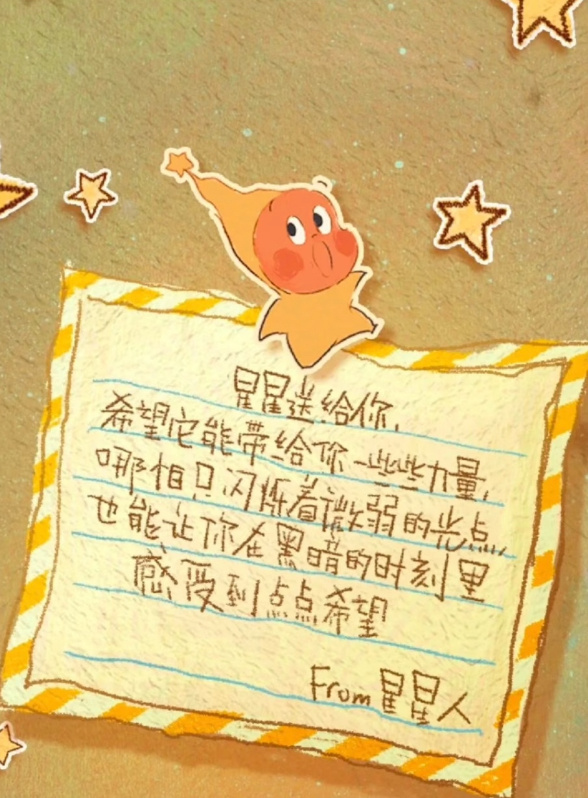 星星送给你,
希望它能带给你一些些力量,
哪怕只闪烁着微弱的光点,
也能让你在黑暗的时刻里
感受到点点希望
From 星星人